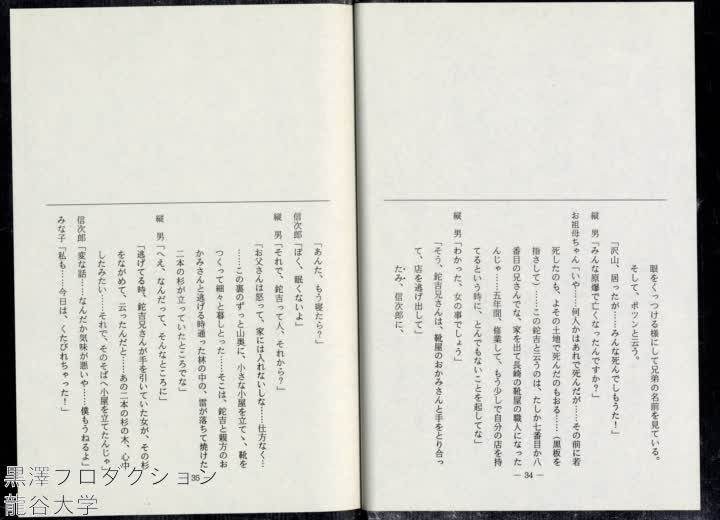 眼をくっつける様にして兄弟の名前を見ている。
そして、ポツンと云う。
「沢山、居ったが……みんな死んでしもうた！」
縦　男「みんな原爆で亡くなったんですか？」
お祖母ちゃん「いや……何人かはあれで死んだが……その前に若
死したのも、よその土地で死んだのもおる……（黒板を
指さして）……この鉈吉と云うのは、たしか七番目か八
番目の兄さんでな、家を出て長崎の靴屋の職人になった
んじゃ……五年間、修業して、もう少しで自分の店を持
てるという時に、とんでもないことを起してな」
縦　男「わかった、女の事でしょう」
「そう、鉈吉兄さんは、靴屋のおかみさんと手をとり合っ
て、店を逃げ出して」
たみ、信次郎に、
― 34 ―
「あんた、もう寝たら？」
信次郎「ぼく、眠くないよ」
縦　男「それで、鉈吉って人、それから？」
「お父さんは怒って、家には入れないしな……仕方なく…
……この裏のずっと山奥に、小さな小屋を立てゝ、靴を
つくって細々と暮しとった……そこは、鉈吉と親方のお
かみさんと逃げる時通った林の中の、雷が落ちて焼けた
二本の杉が立っていたところでな」
縦　男「へえ、なんだって、そんなところに」
「逃げてる時、鉈吉兄さんが手を引いていた女が、その杉
をながめて、云ったんだと……あの二本の杉の木、心中
したみたい……それで、そのそばへ小屋を立てたんじゃ」
信次郎「変な話……なんだか気味が悪いや……僕もうねるよ」
みな子「私も……今日は、くたびれちゃった！」
35 ―
黒澤プロダクション
龍谷大学